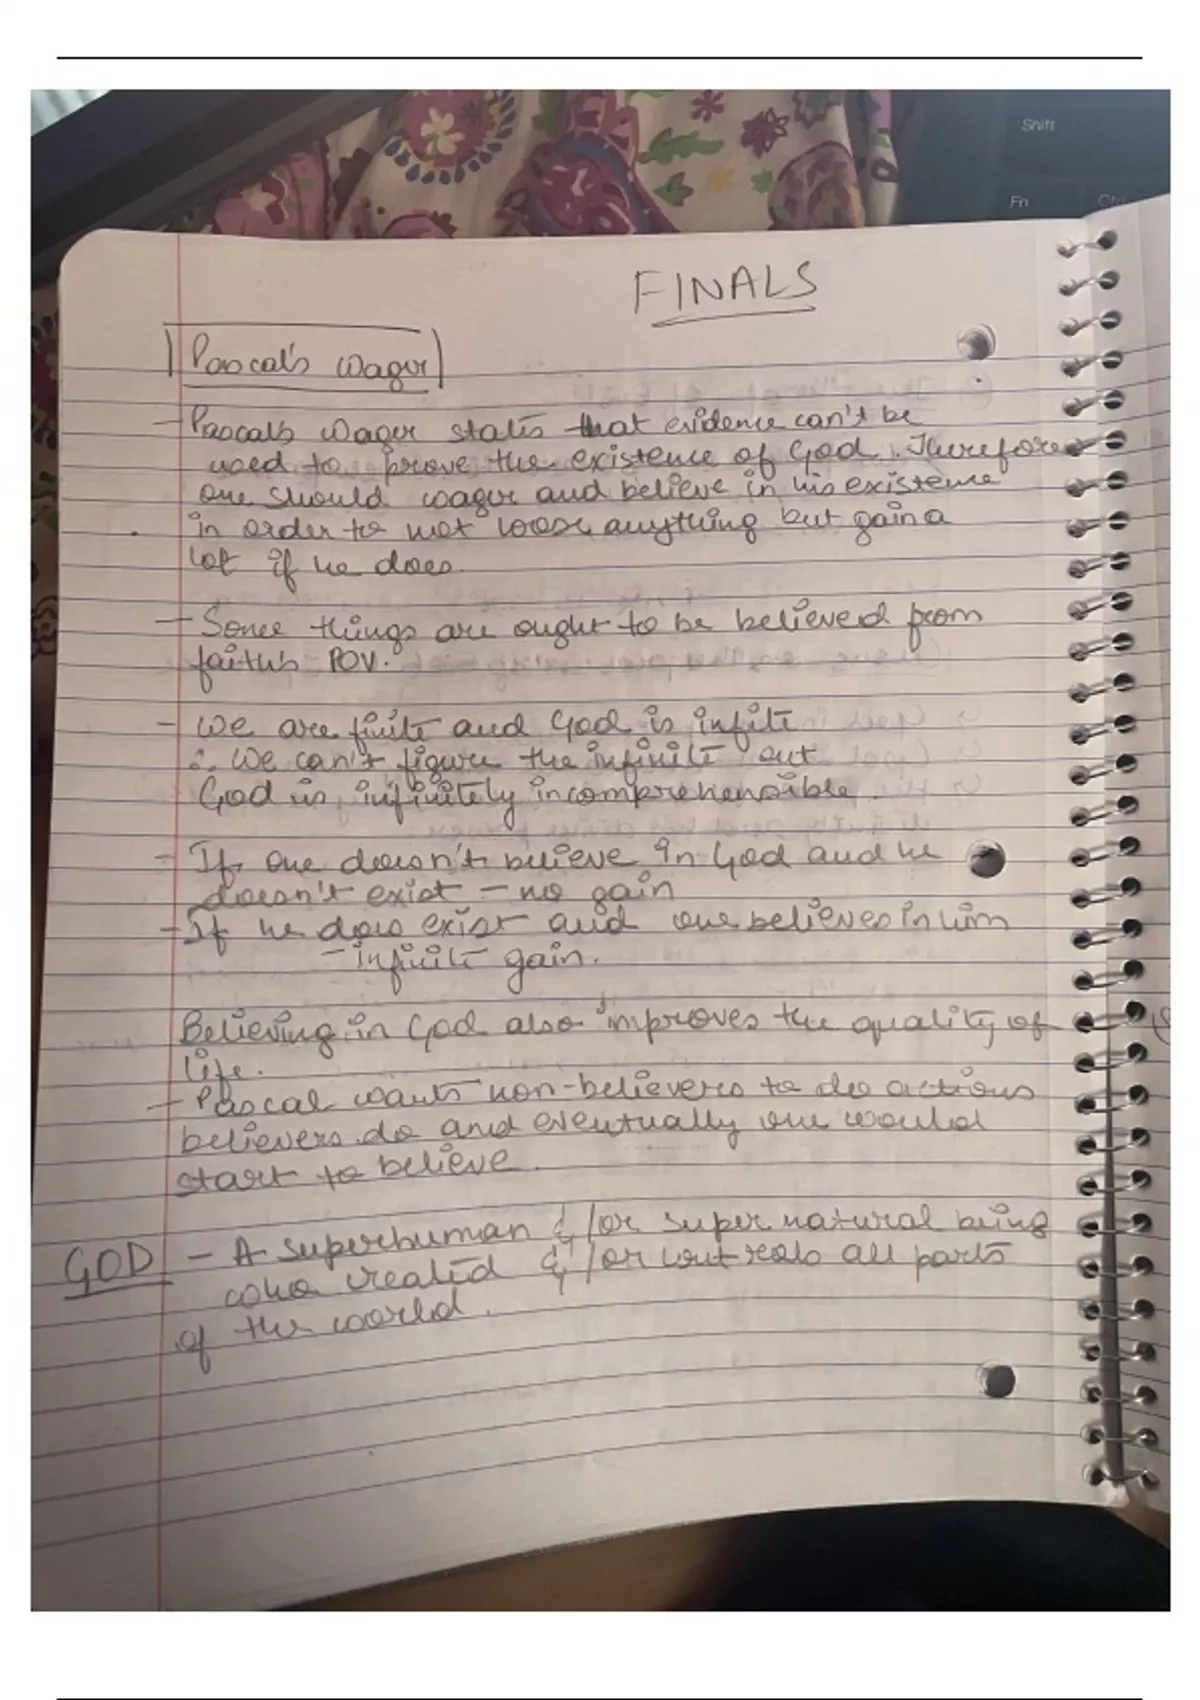 Shift
Fn
Ctrl
FINALS
Pascal's Wager
- Pascal's Wager states that evidence can't be
used to prove the existence of God. Therefore
one should wager and believe in his existence
in order to not loose anything but gain a
lot if he does.
- Some things are ought to be believed from
faith's POV.
- We are finite and God is infite
∴ We can't figure the infinite out
God is infinitely incomprehensible.
- If one doesn't believe in God and he
doesn't exist - no gain
- If he does exist and one believes in him
- infinite gain.
Believing in God also improves the quality of
life.
- Pascal wants non-believers to do actions
believers do and eventually one would
start to believe.
GOD - A superhuman & /or supernatural being
who created & /or controls all parts
of the world.